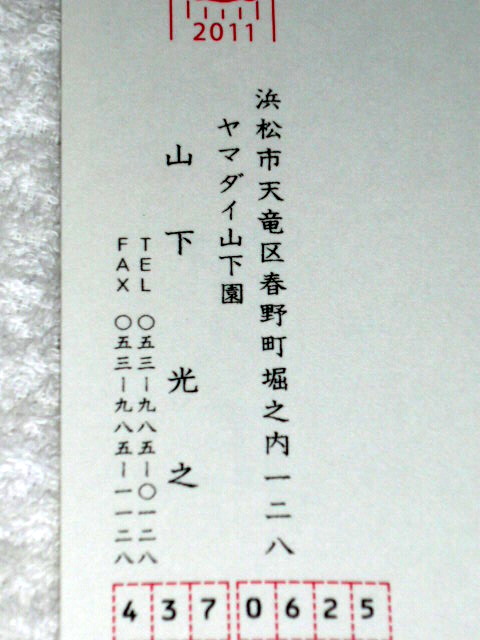 2011
浜松市天竜区春野町堀之内一二八
ヤマダイ山下園
山下光之
TEL 〇五三ー九八五ー〇一二八
FAX 〇五三ー九八五ー一一二八
4370625